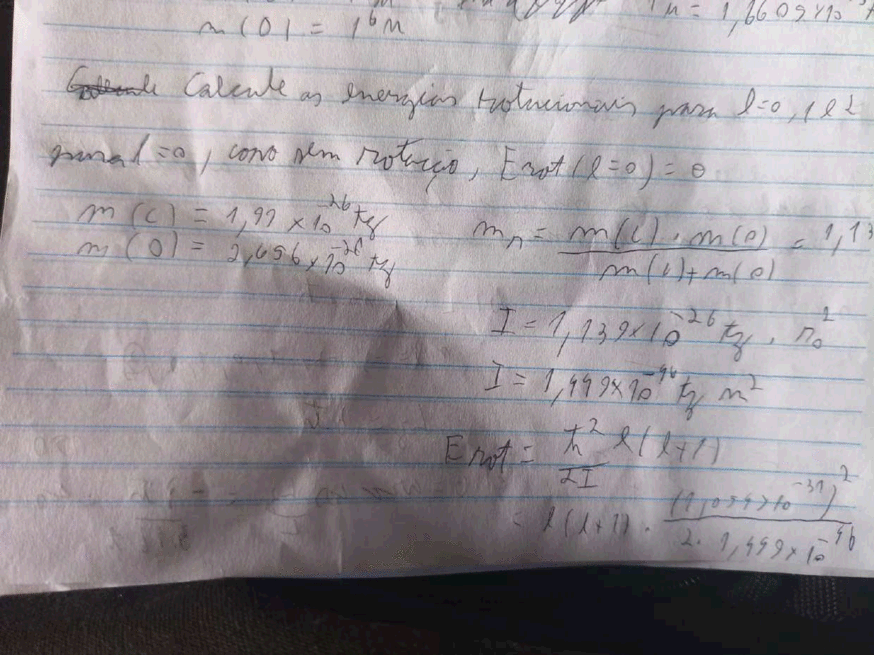 m(O) = 16u
u = 1,6609x10
Calcule as energias rotacionais para l=0, 1 e 2
para l=0, como sem rotação, Erot(l=0) = 0
m(C) = 1,99 x 10^-26 kg
m(O) = 2,656 x 10^-26 kg
mr = m(C) . m(O) / m(C)+m(O) = 1,13
I = 1,139x10^-26 kg . r0^2
I = 1,449x10^-46 kg m^2
Erot = ħ^2/2I l(l+1)
= l(l+1) . (1,054x10^-34)^2 / 2. 1,449x10^-46